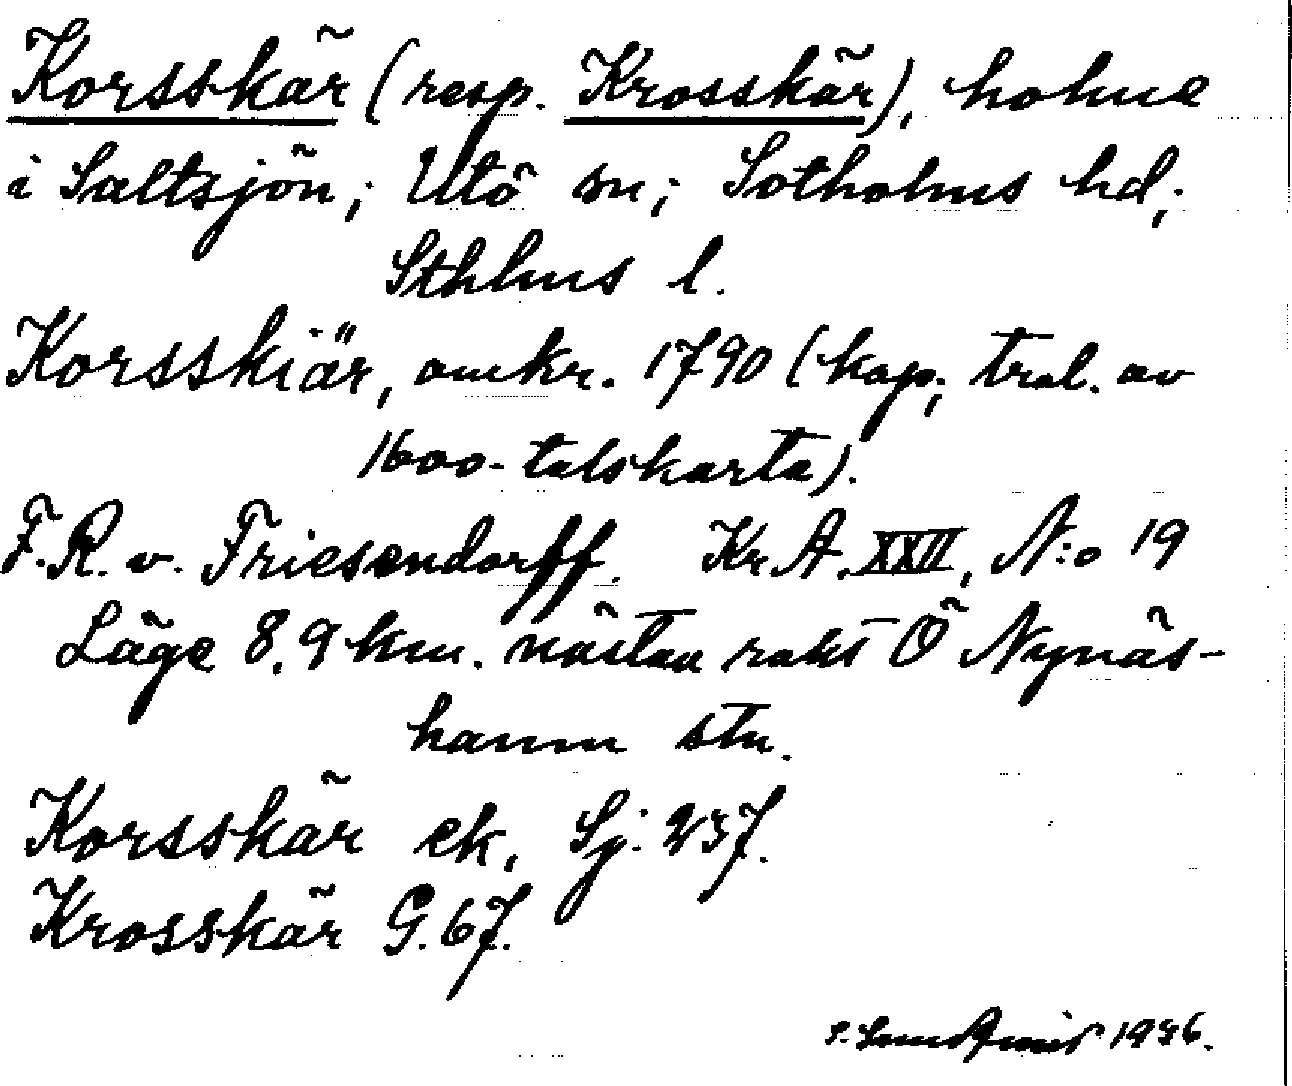 Korsskär (resp. Krosskär), holme
i Saltsjön; Utö sn; Sotholms hd;
Sthlms l.
Korsskiär, omkr. 1790 (kop; trol. av
1600-talskarta).
F.R. v. Friesendorff. Kr. A. XXII, N:o 19
Läge 8,9 km. nästan rakt Ö Nynäs-
hamn stn.
Korsskär ek, Sj: 237.
Krosskär G. 67.
S. Sundqvist 1936.